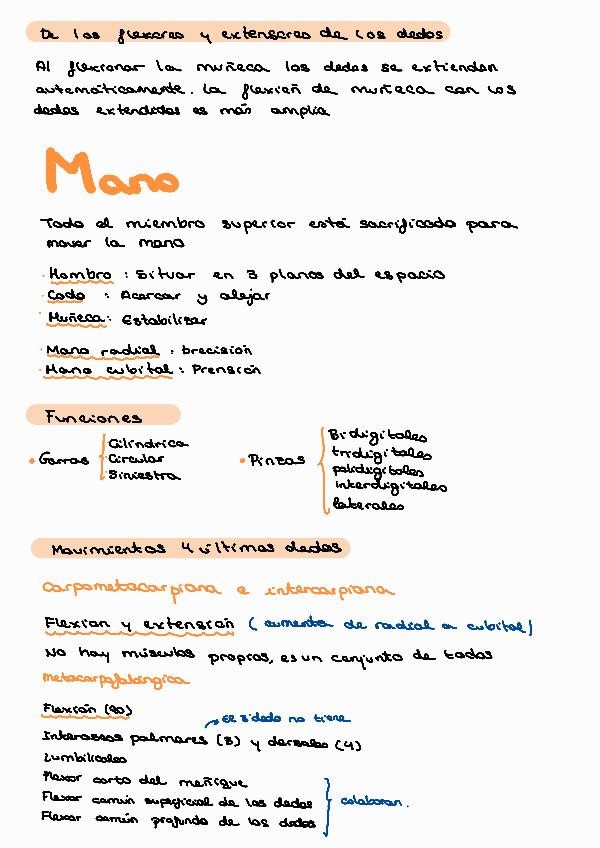 De los flexores y extensores de los dedos
Al flexionar la muñeca los dedos se extienden
automáticamente. La flexión de muñeca con los
dedos extendidos es más amplia
Mano
Todo el miembro superior está sacrificado para
mover la mano
· Hombro : Situar en 3 planos del espacio
· Codo : Acercar y alejar
· Muñeca: Estabilizar
· Mano radial : precisión
· Mano cubital : Prensión
Funciones
• Garras { Cilíndrica
Circular
Siniestra
• Pinzas { Bidigitales
tridigitales
polidigitales
interdigitales
laterales
Movimientos 4 últimos dedos
Carpometacarpiana e intercarpiana
Flexion y extensión ( aumenta de radial a cubital)
No hay músculos propios, es un conjunto de todos
metacarpofalángica
Flexión (90)
→ El 3 dedo no tiene
Interoseos palmares (3) y dorsales (4)
Lumbricales
Flexor corto del meñique
Flexor común superficial de los dedos } colaboran.
Flexor común profundo de los dedos